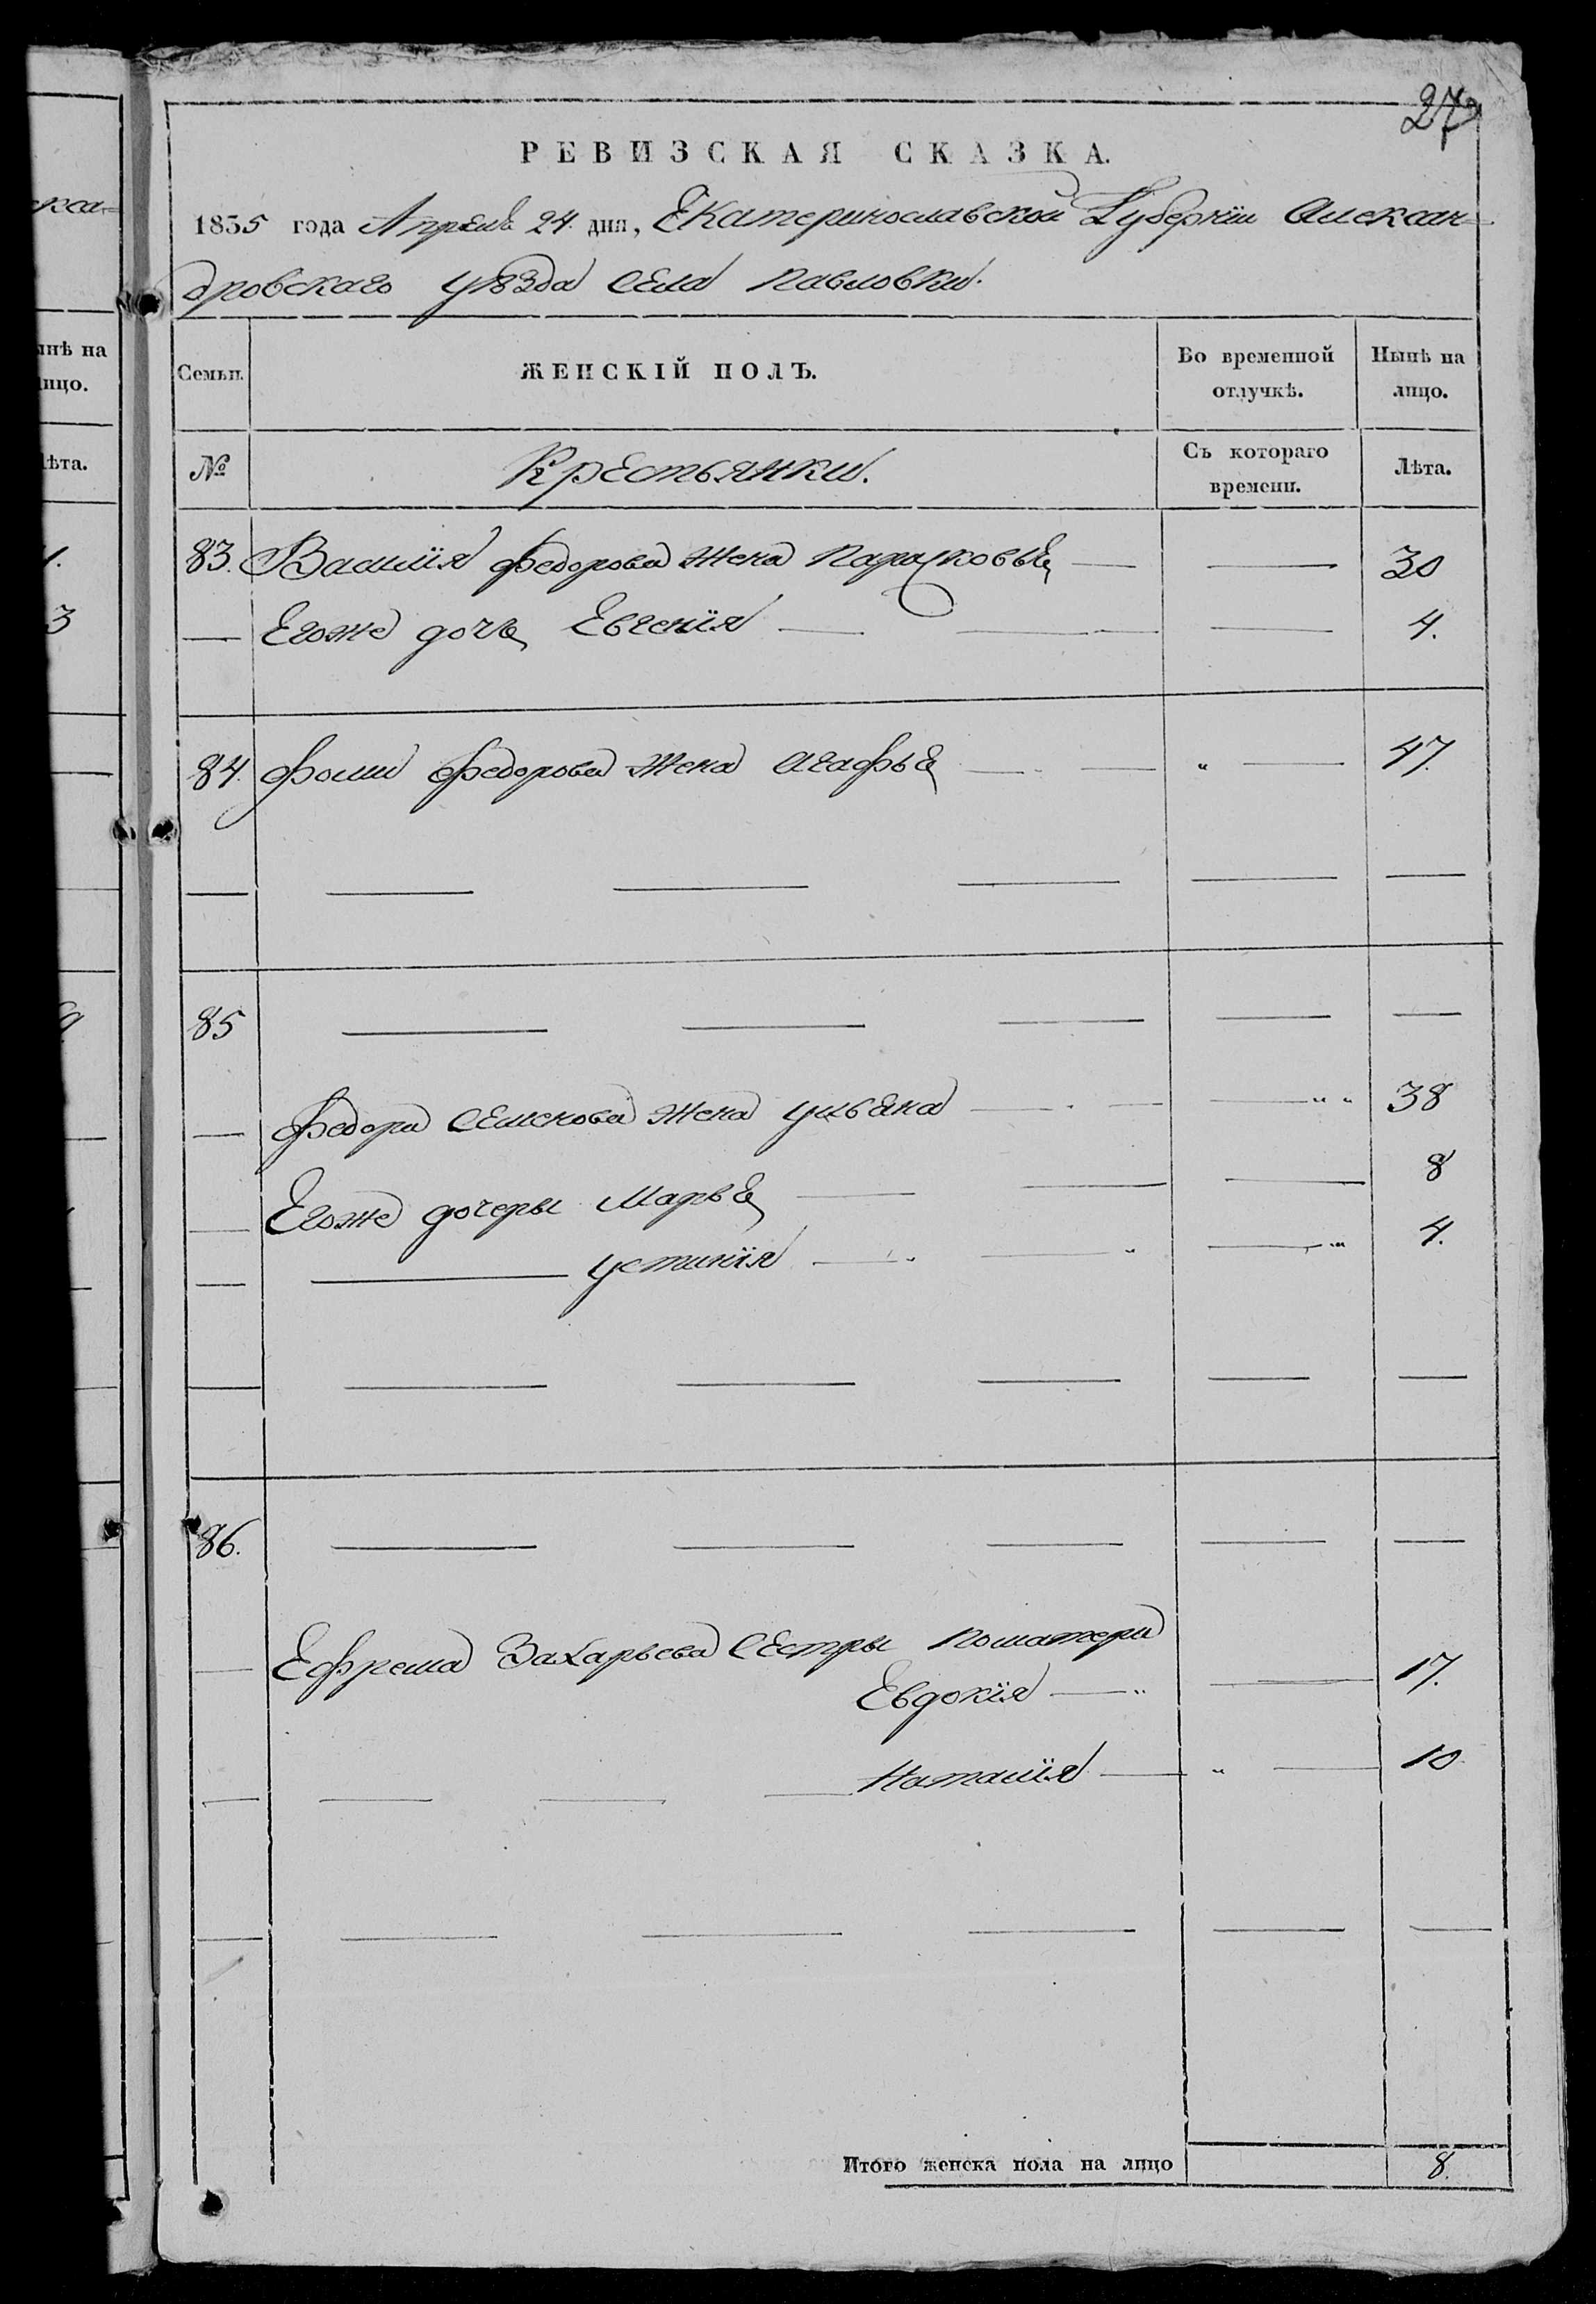 27
РЕВИЗСКАЯ СКАЗКА.
1835 года Апреля 24 дня, Екатеринославской Губернїи Алексан=
дровскаго уѣзда села Павловки.
Семьи.
ЖЕНСКІЙ ПОЛЪ.
Во временной отлучкѣ.
Нынѣ на лицо.
№
Крестьянки.
Съ котораго времени.
Лѣта.
83. Василїя Федорова жена Парасковья — — 30
— Егоже дочь Евгенїя — — — 4.
84. Фомы Федорова жена Агафья — — " — 47.
85
— Федора Семенова жена Ульяна — — — " " 38
— Егоже дочеры Марья — — — 8
— — Устинїя — " — " — " 4.
86.
— Ефрема Захарьева сестры поматери
Евдокїя — " — 17.
— — — — Наталїя — " — 10
Итого женска пола на лицо 8.
кса=
ынѣ на
лицо.
лѣта.
1.
3